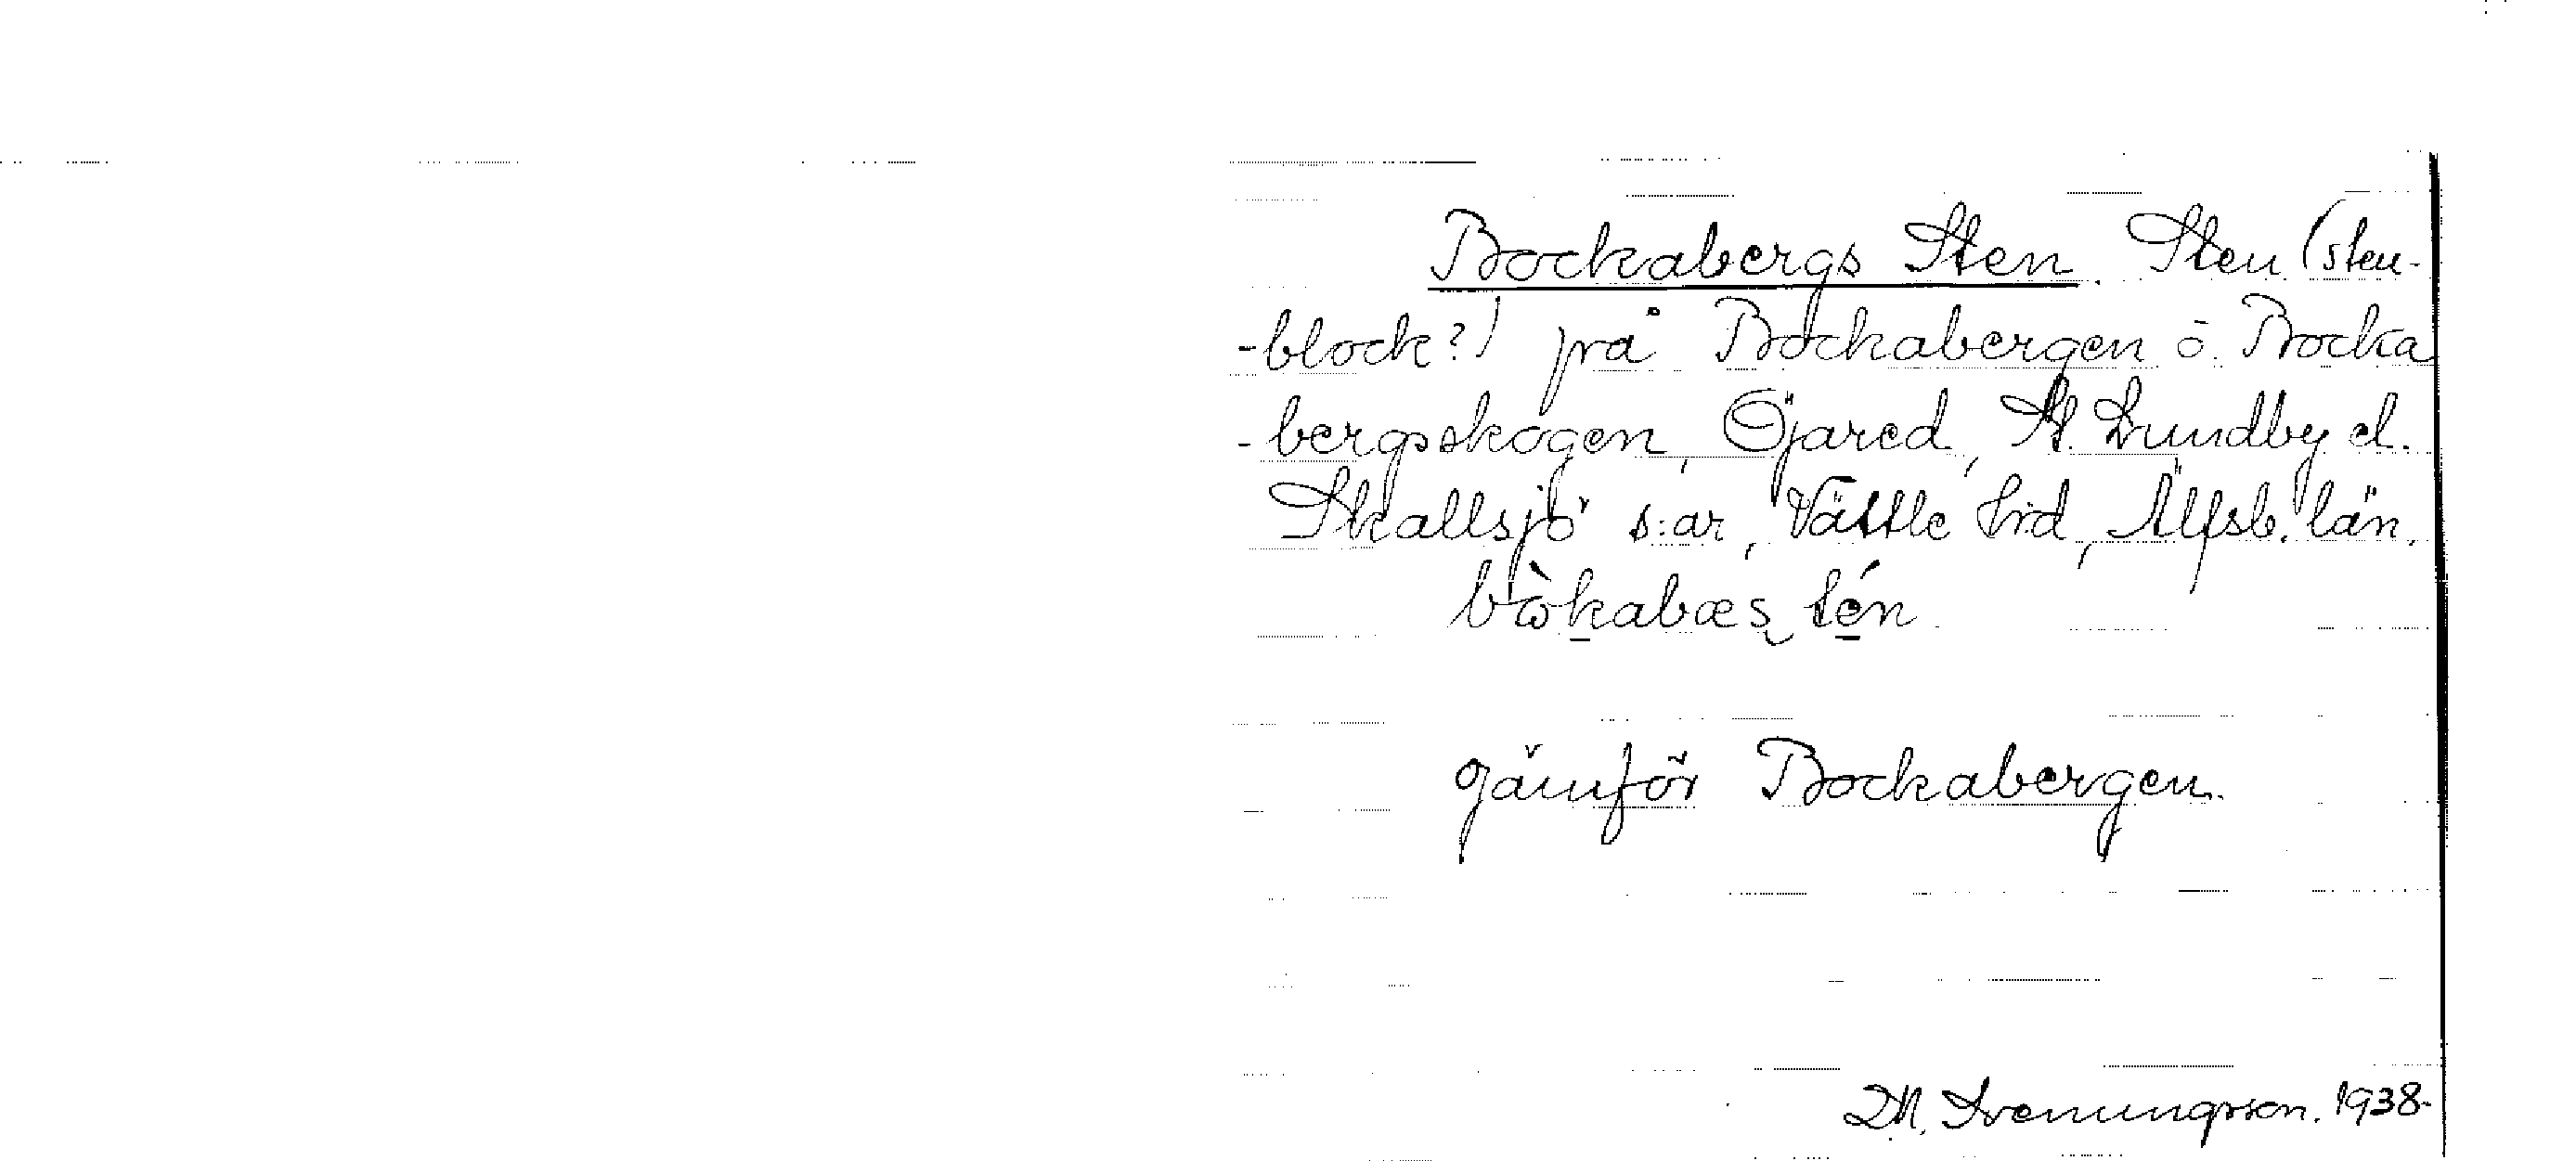 Bockabergs Sten. Sten (sten-
-block?) på Bockabergen o. Bocka
-bergsskogen, Öjared, St. Lundby el.
Skallsjö s:ar, Vättle hrd, Älfsb. län.
bòkabæs tén.
Jämför Bockabergen.
M. Svenungsson. 1938.